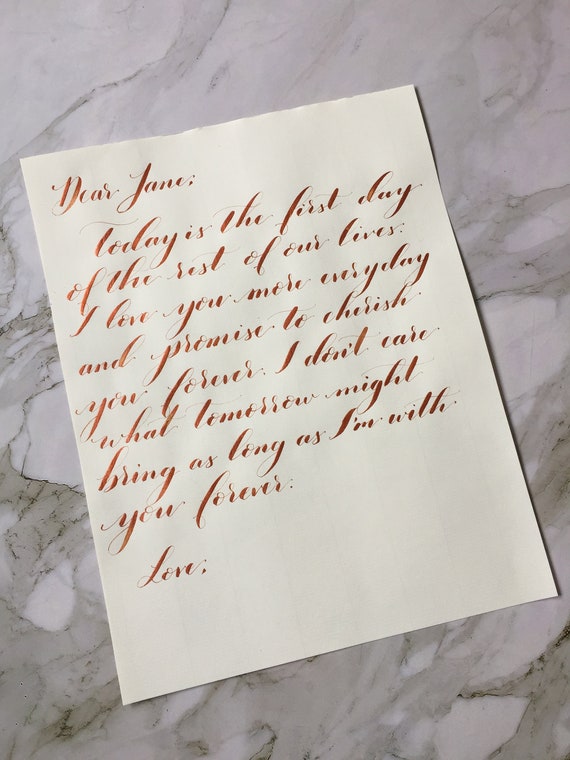 Dear Jane,
Today is the first day
of the rest of our lives.
I love you more everyday
and promise to cherish
you forever. I don't care
what tomorrow might
bring as long as I'm with
you forever.
Love,